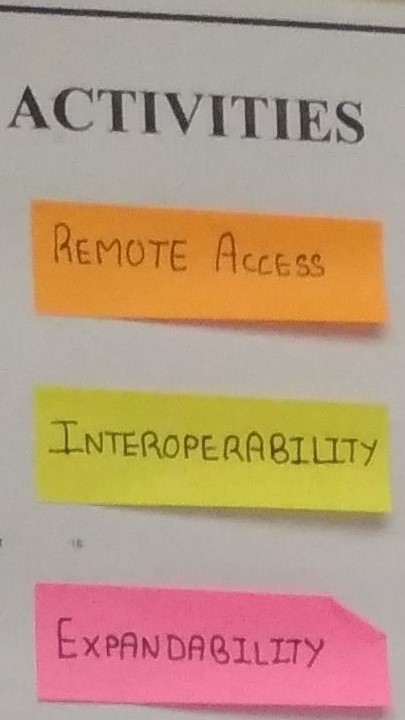 ACTIVITIES
REMOTE ACCESS
INTEROPERABILITY
EXPANDABILITY